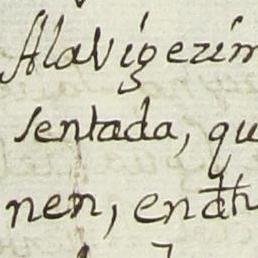 Alavigezim
sentada, qu
nen, en dh